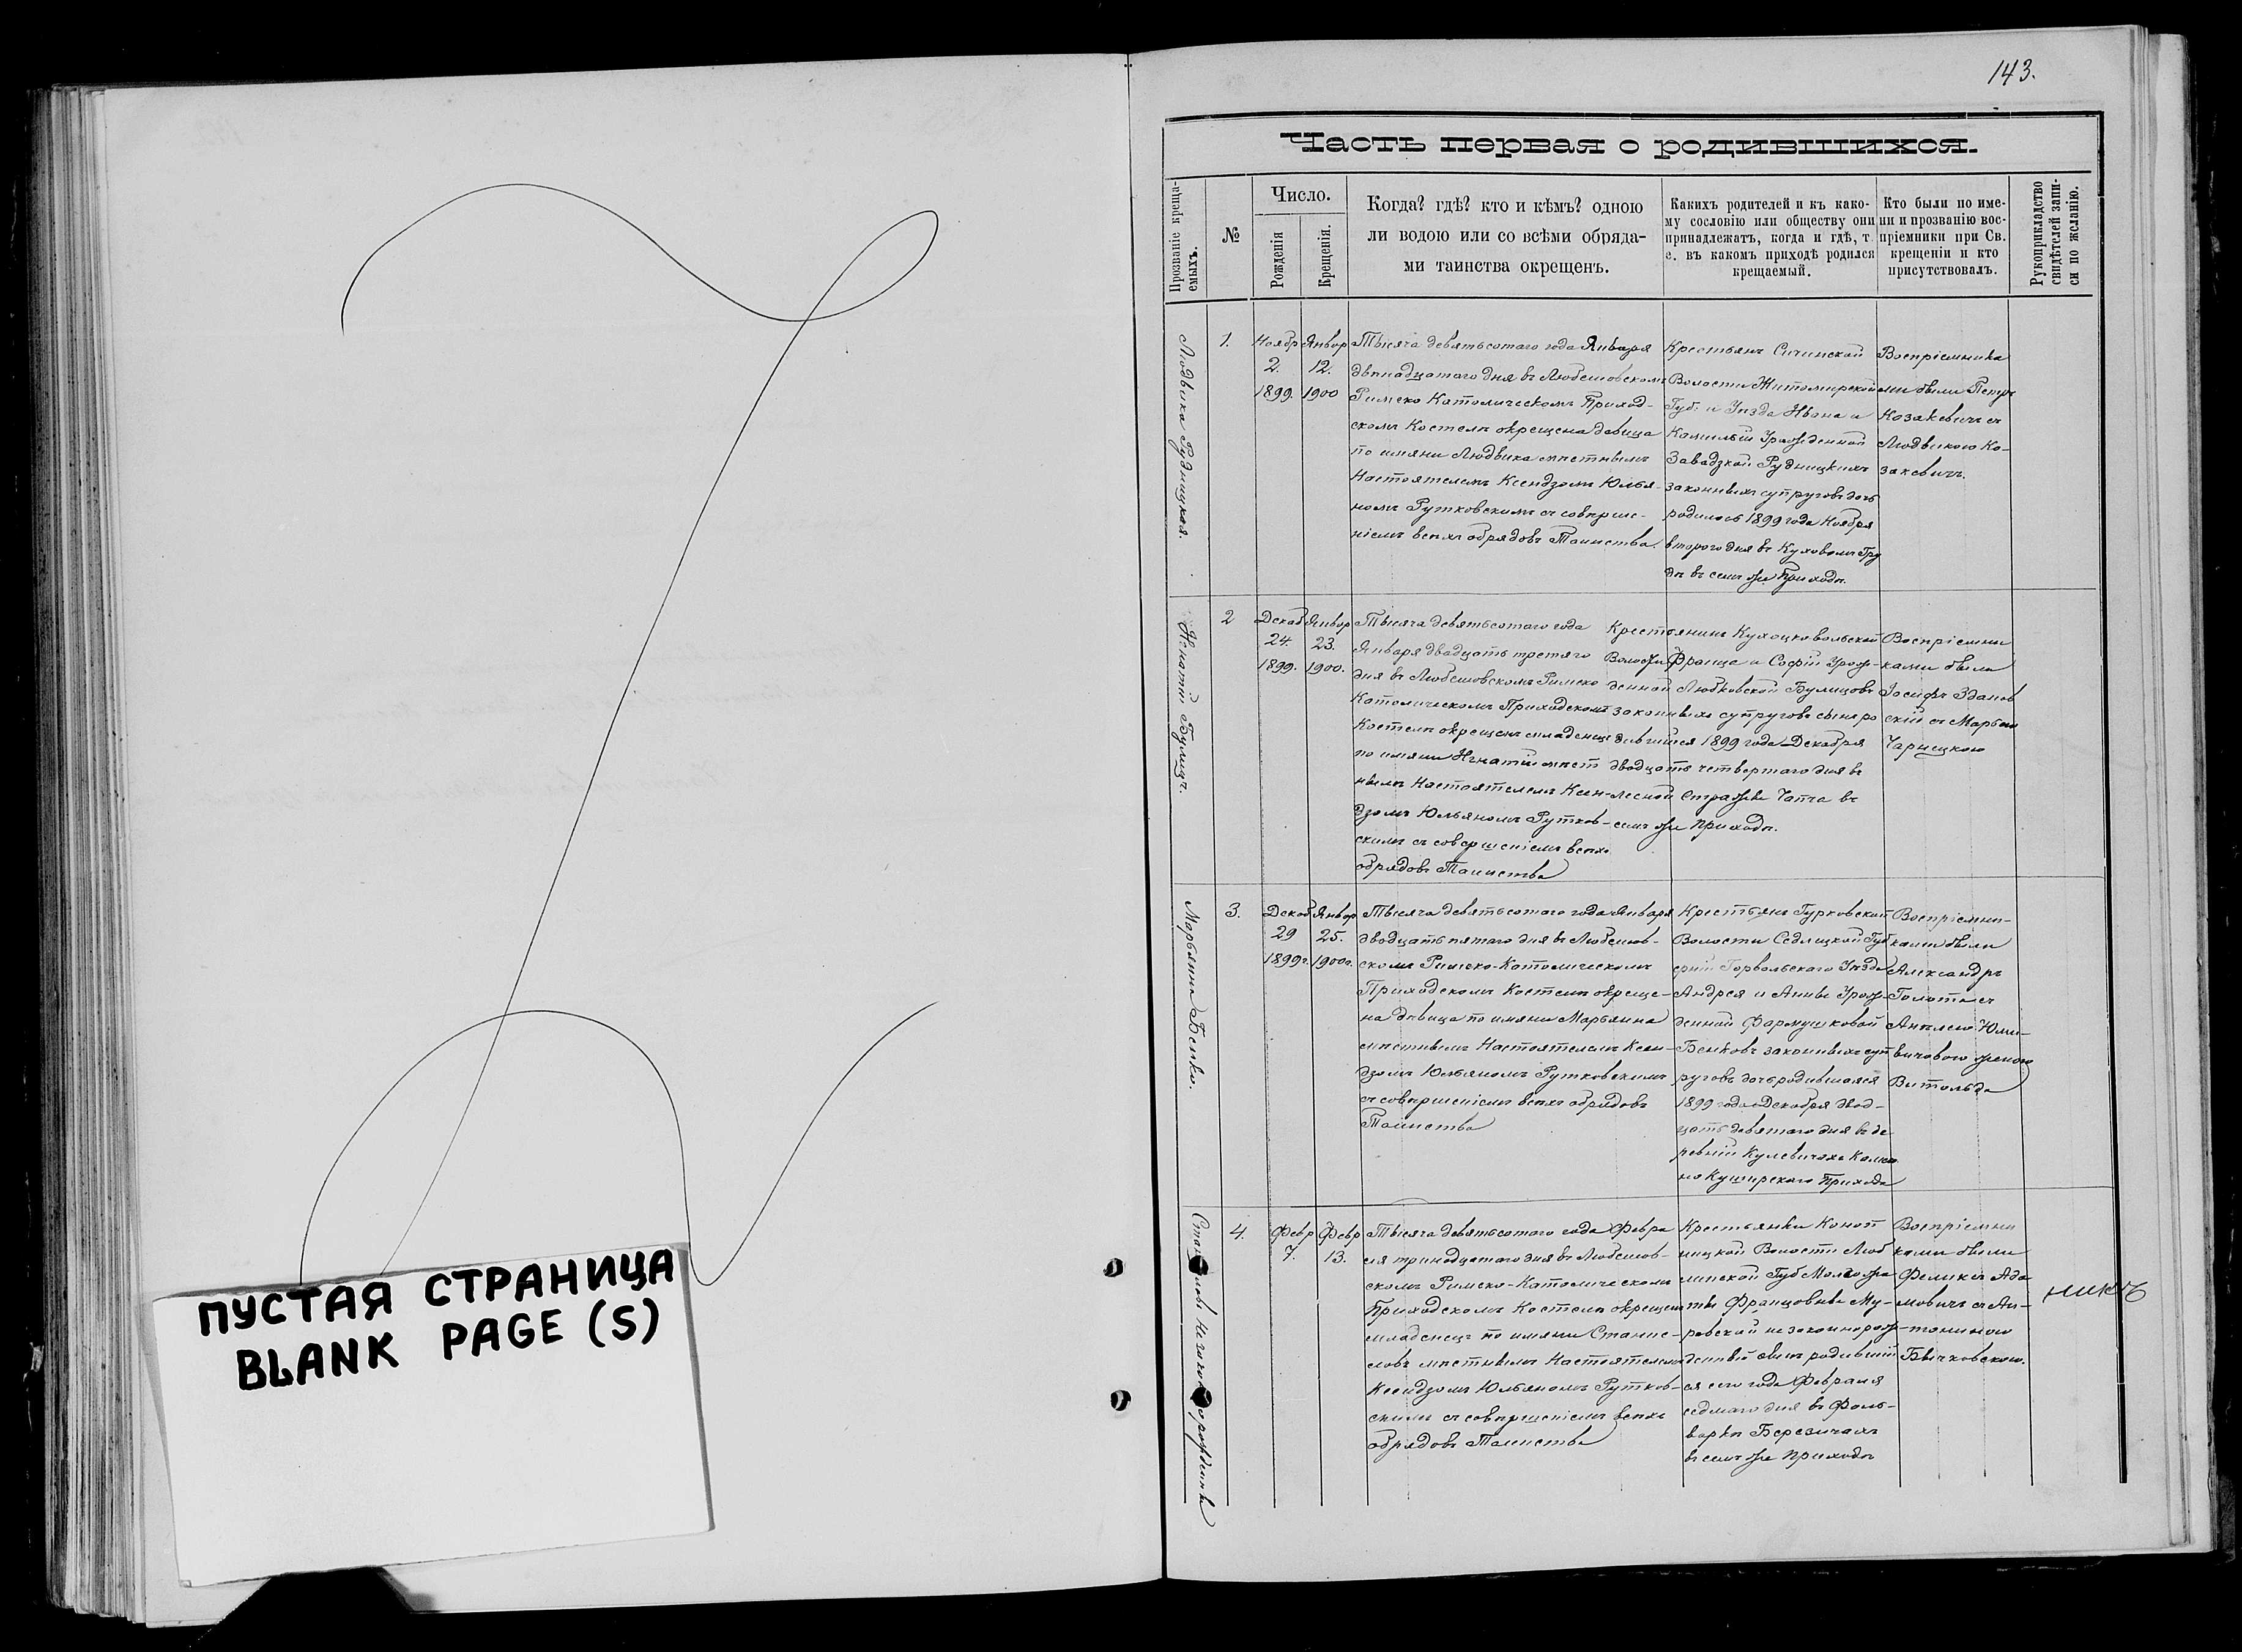 143.
Часть первая о родившихся.
Прозваніе креща-
емыхъ.
№
Число.
Рожденія
Крещенія.
Когда? гдѣ? кто и кѣмъ? одною
ли водою или со всѣми обряда-
ми таинства окрещенъ.
Какихъ родителей и къ како-
му сословію или обществу они
принадлежатъ, когда и гдѣ, т.
е. въ какомъ приходѣ родился
крещаемый.
Кто были по име-
ни и прозванію вос-
пріемники при Св.
крещеніи и кто
присутствовалъ.
Рукоприкладство
свидѣтелей запи-
си по желанію.
Людвика Рудницкая.
1.
Ноябр
2.
1899.
Январ
12.
1900
Тысяча девятьсотаго года Января
двѣнадцатаго дня въ Любешовскомъ
Римско Католическомъ Приход-
скомъ Костелѣ окрещена девица
по имяни Людвика мѣстнымъ
Настоятелемъ Ксендзомъ Юлья-
номъ Рутковскимъ съ соверше-
ніемъ всѣхъ обрядовъ Таинства.
Крестьянъ Сичинской
Волости Житомирской
Губ. и Уѣзда Ивана и
Камиліи Урожденной
Завадзкой Рудницкихъ
законныхъ супруговъ дочь
родилась 1899 года Ноября
втораго дня въ Куховомъ Гру
дѣ въ семъ же Приходѣ.
Воспріемника
ми были Петръ
Козакевичъ съ
Людвикою Ко-
закевичъ.
Игнатій Булицъ.
2
Декаб
24.
1899.
Январ
23.
1900.
Тысяча девятьсотаго года
Января двадцать третяго
дня въ Любешовскомъ Римско
Католическомъ Приходскомъ
Костелѣ окрещенъ младенецъ
по имяни Игнатій мѣст
нымъ Настоятелемъ Ксен-
дзомъ Юльяномъ Рутков-
скимъ съ совершеніемъ всѣхъ
обрядовъ Таинства
Крестьянина Кухоцковольской
Волости Франца и Софіи Урож-
денной Любковской Булицовъ
законныхъ супруговъ сынъ ро
дившійся 1899 года Декабря
двадцать четвертаго дня въ
лесной Стражѣ Чапча въ
семъ же приходѣ.
Воспріемни
ками были
Іосифъ Зданов
скій съ Марьею
Чарнецкою
Марьянна Бенко.
3.
Декаб
29
1899г.
Январ
25.
1900г.
Тысяча девятьсотаго года Января
двадцать пятаго дня въ Любешов-
скомъ Римско-Католическомъ
Приходскомъ Костелѣ окреще-
на дѣвица по имяни Марьянна
мѣстнымъ Настоятелемъ Ксен-
дзомъ Юльяномъ Рутковскимъ
съ совершеніемъ всѣхъ обрядовъ
Таинства
Крестьянъ Гурковской
Волости Седлицкой Губ
Уѣзда
Андрея и Анны Урож-
денной
Бенковъ законныхъ суп
руговъ дочь родившаяся
1899 года Декабря двад-
цать девятаго дня въ де
ревнѣ Кулевичахъ Каме
но Куширскаго Прихода
Воспріемни-
ками были
Александръ
Голота съ
женою
Витольда
4.
Февр
7.
Февр
13.
Тысяча девятьсотаго года Февра
ля тринадцатаго дня въ Любешов-
скомъ Римско-Католическомъ
Приходскомъ Костелѣ окрещенъ
младенецъ по имяни Станис-
лавъ мѣстнымъ Настоятелемъ
Ксендзомъ Юльяномъ Рутков-
скимъ съ совершеніемъ всѣхъ
обрядовъ Таинства
Крестьянки Коноп
ницкой Волости Люб
линской Губ
незаконнорож-
денный сынъ родившій
ся сего года Февраля
седмаго дня въ Фоль-
варкѣ Березичахъ
въ семъ же приходѣ
Воспріемни
ками были
Феликсъ Ада
мовичъ съ Ан-
тониною
Бычковскою.
ПУСТАЯ СТРАНИЦА
BLANK PAGE (S)